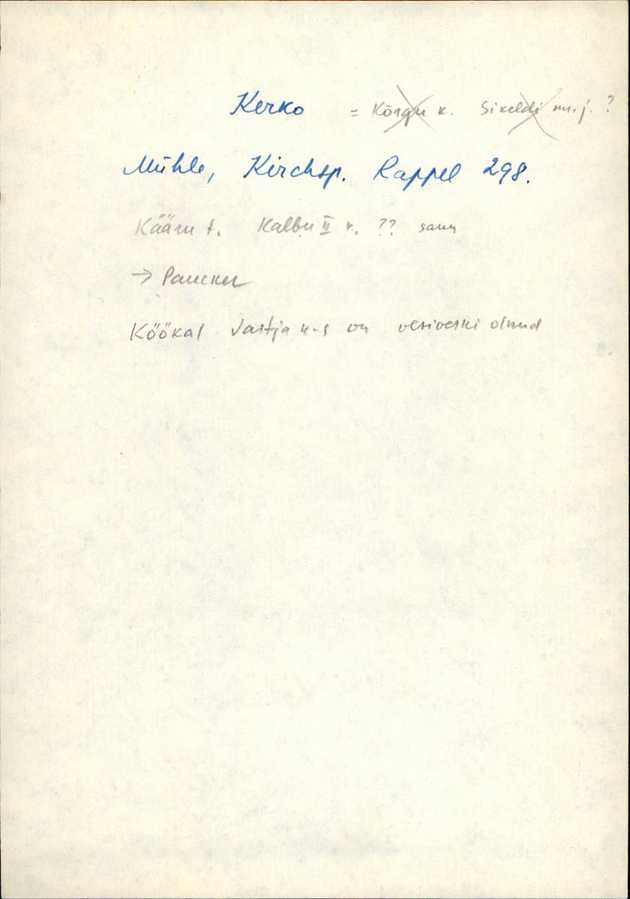 Kerko = Kõrgu k. Sikeldi m.j. ?
Mühle, Kirchsp. Rappel 298.
Kääru t. Kalbu II k. ??
→ Paucker
Köökal Vastja k-s on vesiveski olnud